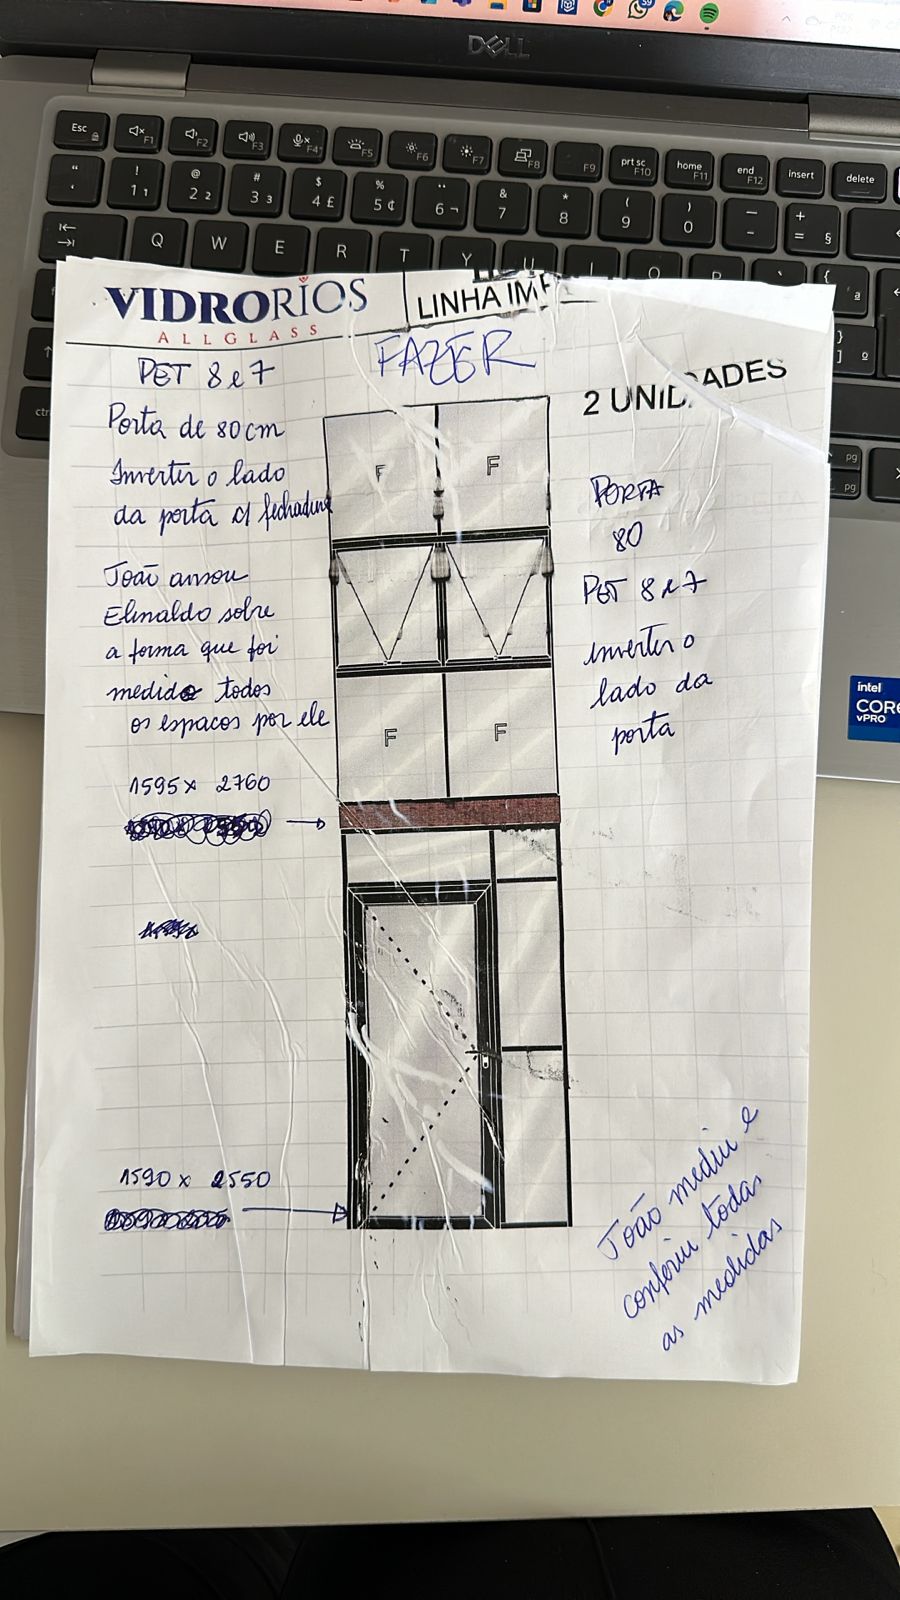 DELL
Esc
F1
F2
F3
F4
F5
F6
F7
F8
F9
prt sc
F10
home
F11
end
F12
insert
delete
Q W E R T Y U I O P
intel
CORE
vPRO
VIDRORIOS
ALLGLASS
LINHA
FAZER
2 UNIDADES
PET 8 e 7
Porta de 80cm
Inverter o lado
da porta c/ fechadura
João avisou
Elinaldo sobre
a forma que foi
medido todos
os espacos por ele
1595 x 2760
1590 x 2550
F F
F F
PORTA
80
PET 8 e 7
inverter o
lado da
porta
João mediu e
conferiu todas
as medidas